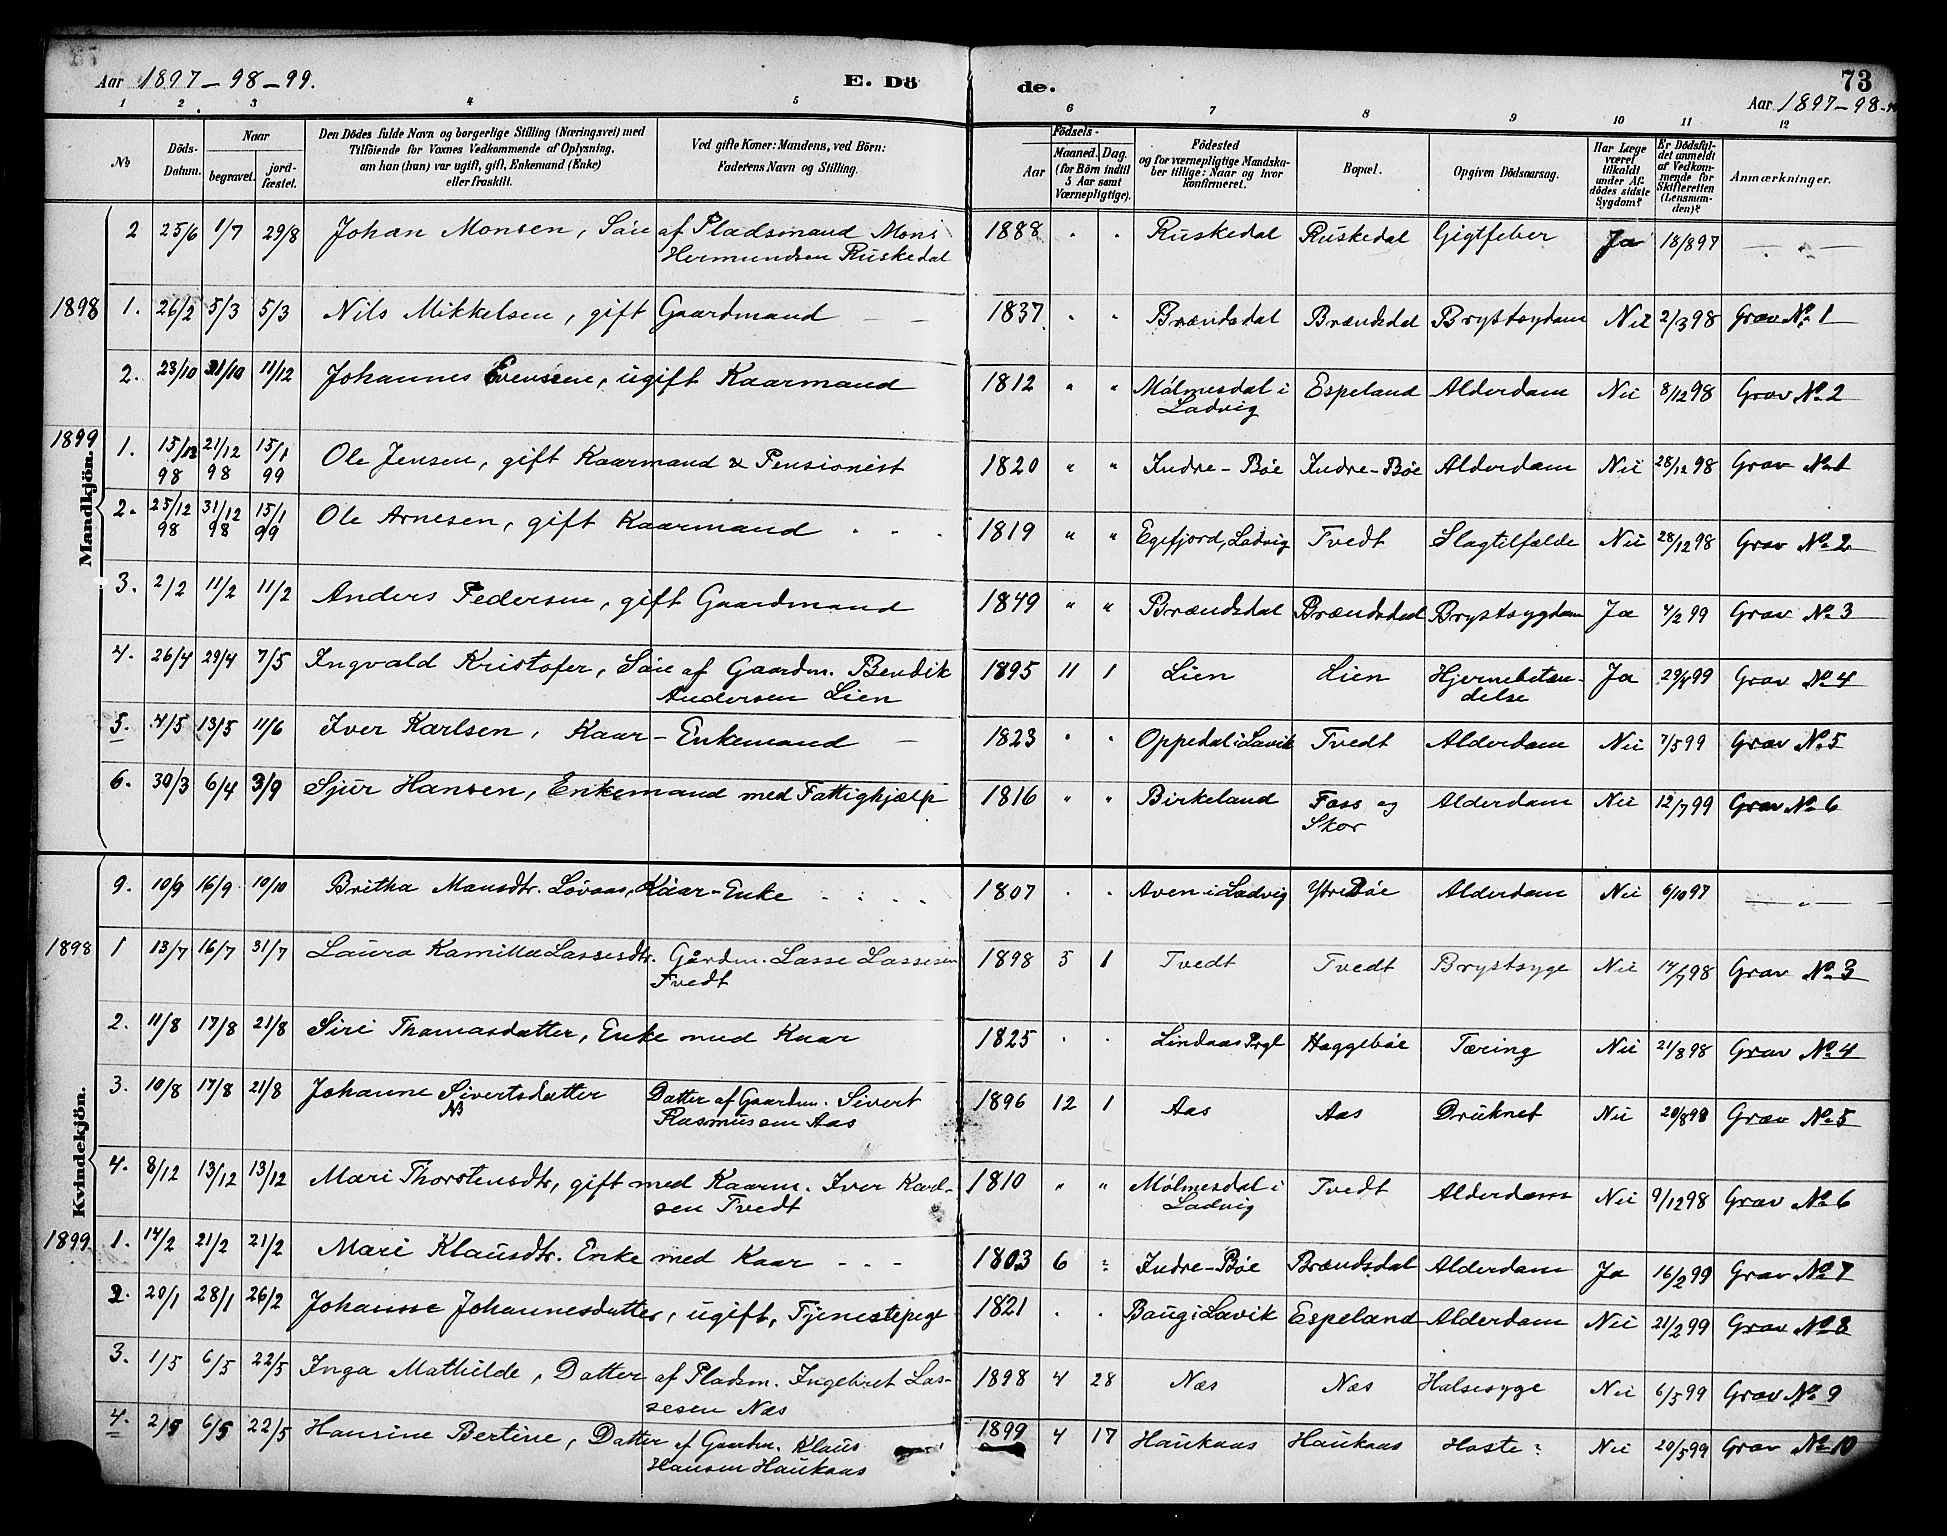 Aar 1897-98-99. E. Dö de. 73
Aar 1897-98-
1 2. 3 4 5 6 7 8 9 10 11 12
No
Döds-Datum.
Naar
begravet.
jord-fæstet.
Den Dödes fulde Navn og borgerlige Stilling (Næringsvei) med
Tilföiende for Voxnes Vedkommende af Oplysning,
om han (hun) var ugift, gift, Enkemand (Enke)
eller fraskilt.
Ved gifte Koner: Mandens, ved Börn:
Faderens Navn og Stilling.
Födsels-
Aar
Maaned. Dag.
(for Börn indtil
5 Aar samt
Værnepligtige).
Födested
og for værnepligtige Mandska-
ber tillige: Naar og hvor
konfirmeret.
Bopæl.
Opgiven Dödsaarsag.
Har Læge
været
tilkaldt
under Af-
dödes sidste
Sygdom?
Er Dödsfal-
det anmeldt
af Vedkom-
mende for
Skifteretten
(Lensman-
den)?
Anmærkninger.
Mandkjön.
2 25/6 1/7 29/8 Johan Monsen, Sön af Pladsmand Mons 1888 . . Ruskedal Ruskedal Gigtfeber Ja 18/897 — " —
Hermundsen Ruskedal
1898 1. 26/2 5/3 5/3 Nils Mikkelsen, gift Gaardmand — — 1837 . . Brændsdal Brændsdal Brystsygdom Nei 2/3 98 Grav No 1
2. 23/10 31/10 11/12 Johannes Evensen, ugift Kaarmand 1812 " " Mólmesdal i Espeland Alderdom Nei 8/12 98 Grav No 2
Ladvig
1899 1. 15/12 21/12 15/1 Ole Jensen, gift Kaarmand & Pensionist 1820 " " Indre-Bøe Indre-Bøe Alderdom Nei 28/12 98 Grav No 1
98 98 99
2. 25/12 31/12 15/1 Ole Arnesen, gift Kaarmand . . . 1819 " " Egefjord, Ladvig Tvedt Slagtilfælde Nei 28/12 98 Grav No 2
98 98 99
3. 2/2 11/2 11/2 Anders Pedersen, gift Gaardmand 1849 " " Brændsdal Brændsdal Brystsygdom Ja 4/2 99 Grav No 3
4. 26/4 29/4 7/5 Ingvald Kristofer, Sön af Gaardm. Bendik 1895 11 1 Lien Lien Hjernebetæn- Ja 29/4 99 Grav No 4
Andersen Lien delse
5. 4/5 13/5 11/6 Iver Karlsen, Kaar-Enkemand — 1823 . . Oppedal i Lavik Tvedt Alderdom Nei 7/5 99 Grav No 5
6. 30/3 6/4 3/9 Sjur Hansen, Enkemand med Fattighjælp 1816 " " Birkeland Foss og Alderdom Nei 12/7 99 Grav No 6
Skor
Kvindekjön.
9. 10/9 16/9 10/10 Britha Monsdtr. Lovaas, Kaar-Enke . . . . 1807 . . Aven i Ladvig Ytre Bøe Alderdom Nei 6/10 97 — " —
1898 1 13/7 16/7 31/7 Laura Kamilla Lassesdtr. Gårdm. Lasse Lassesen 1898 5 1 Tvedt Tvedt Brystsyge Nei 14/7 98 Grav No 3
Tvedt
2. 11/8 17/8 21/8 Siri Thomasdatter, Enke med Kaar 1825 . . Lindaas Prgl Haggebøe Tæring Nei 21/8 98 Grav No 4
3. 10/8 17/8 21/8 Johanne Sivertsdatter Datter af Gaardm. Sivert 1896 12 1 Aas Aas Druknet Nei 20/8 98 Grav No 5
NB Rasmussen Aas
4. 8/12 13/12 13/12 Mari Thorstensdtr, gift med Kaarm. Iver Karl- 1810 " " Mólmesdal i Tvedt Alderdom Nei 9/12 98 Grav No 6
sen Tvedt Ladvig
1899. 1. 14/2 21/2 21/2 Mari Klausdtr. Enke med Kaar - - - 1803 6 ? Indre-Bøe Brændsdal Alderdom Ja 16/2 99 Grav No 7
2. 20/1 28/1 26/2 Johanne Johannesdatter, ugift, Tjenestepige 1821 . . Baug i Lavik Espeland Alderdom Nei 21/2 99 Grav No 8
3. 1/5 6/5 22/5 Inga Mathilde, Datter af Pladsm. Ingebret Las- 1898 4 28 Næs Næs Halsesyge Nei 6/5 99 Grav No 9
sesen Næs
4. 2/5 6/5 22/5 Hansine Bertine, Datter af Gaardm. Klaus 1899 4 17 Haukaas Haukaas Hoste ? Nei 20/5 99 Grav No 10
Hansen Haukaas